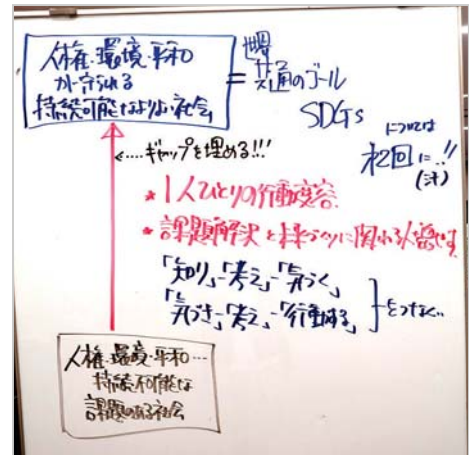 人権・環境・平和
が守られる
持続可能なよりよい社会
= 世界共通のゴール
SDGs
については
次回に..!!
(汗)
....ギャップを埋める!!!
* 1人ひとりの行動変容
* 課題解決と未来づくりに関わる人を増やす
「知り」-「考え」-「気づく」
「気づき」-「考え」-「行動する」
をつなぐ..
人権・環境・平和...
持続不可能な
課題のある社会